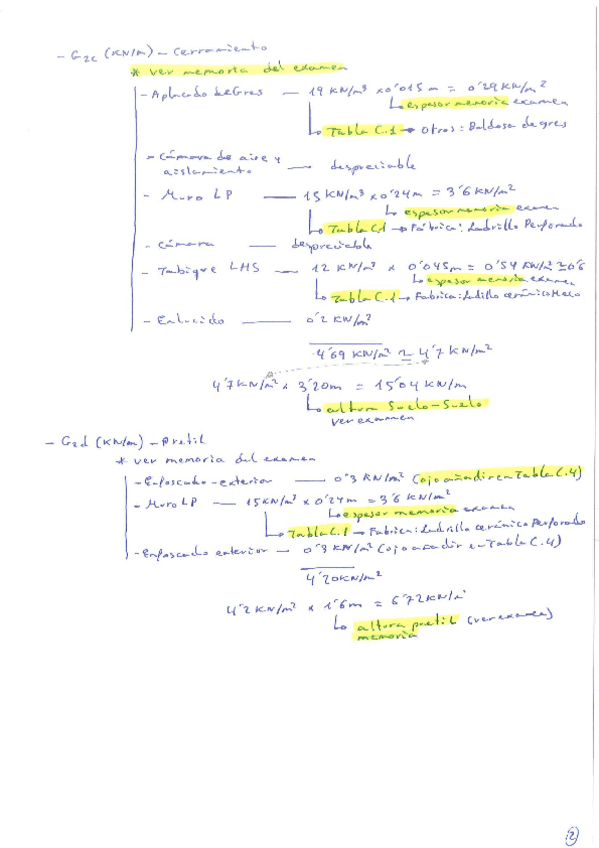 - G2c (KN/m) - Cerramiento
* ver memoria del examen
- Aplacado de Gres — 19 KN/m³ x 0'015 m = 0'29 KN/m²
espesor memoria examen
Tabla C.1 → Otros: Baldosa de gres
- Cámara de aire y aislamiento — despreciable
- Muro LP — 15 KN/m³ x 0'24 m = 3'6 KN/m²
espesor memoria examen
Tabla C.1 → Fábrica: Ladrillo Perforado
- Cámara — despreciable
- Tabique LHS — 12 KN/m³ x 0'045 m = 0'54 KN/m² ≈ 0'6
espesor memoria examen
Tabla C.1 → Fabrica: Ladrillo cerámico Hueco
- Enlucido — 0'2 KN/m²
4'69 KN/m² ≈ 4'7 KN/m²
4'7 KN/m² x 3'20 m = 15'04 KN/m
altura Suelo-Suelo
ver examen
- G2d (KN/m) - Pretil
* ver memoria del examen
- Enfoscado exterior — 0'3 KN/m² (ojo añadir en Tabla C.4)
- Muro LP — 15 KN/m³ x 0'24 m = 3'6 KN/m²
espesor memoria examen
Tabla C.1 → Fabrica: Ladrillo cerámico Perforado
- Enfoscado exterior — 0'3 KN/m² (ojo añadir en Tabla C.4)
4'20 KN/m²
4'2 KN/m² x 1'6 m = 6'72 KN/m
altura pretil (ver examen)
memoria
2